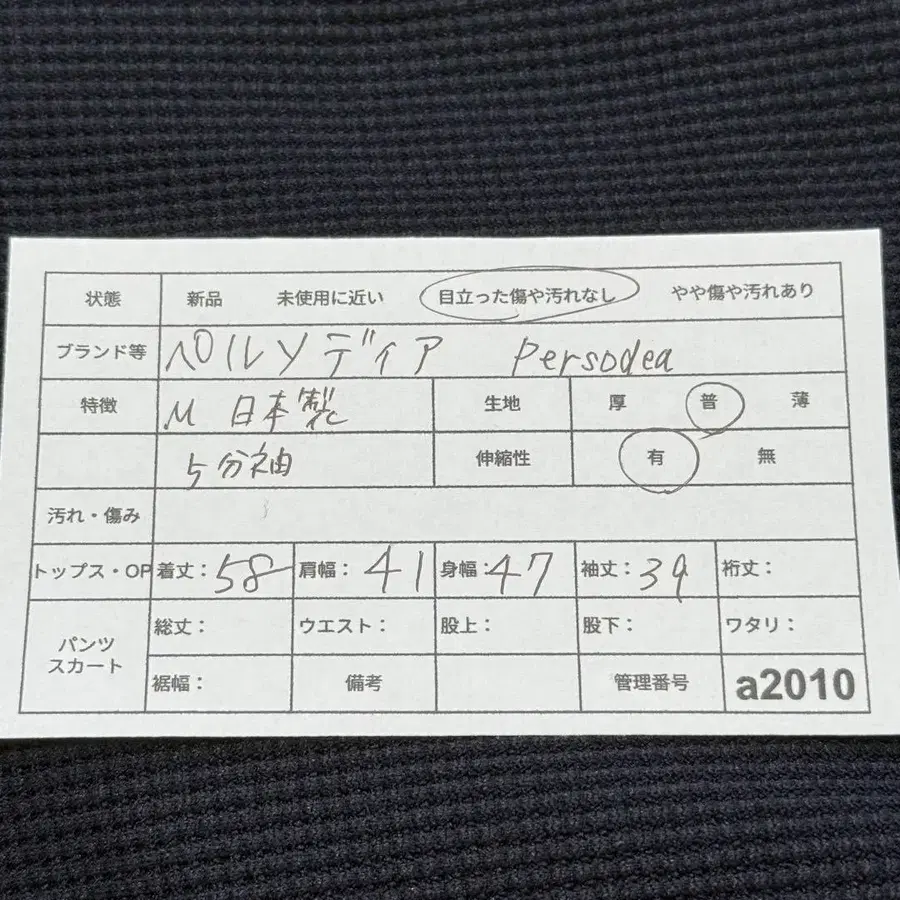 状態 新品 未使用に近い 目立った傷や汚れなし やや傷や汚れあり
ブランド等 ペルソディア Persodea
特徴 M 日本製 生地 厚 普 薄
5分袖 伸縮性 有 無
汚れ・傷み
トップス・OP 着丈: 58 肩幅: 41 身幅: 47 袖丈: 39 裄丈:
パンツ スカート 総丈: ウエスト: 股上: 股下: ワタリ:
裾幅: 備考 管理番号 a2010